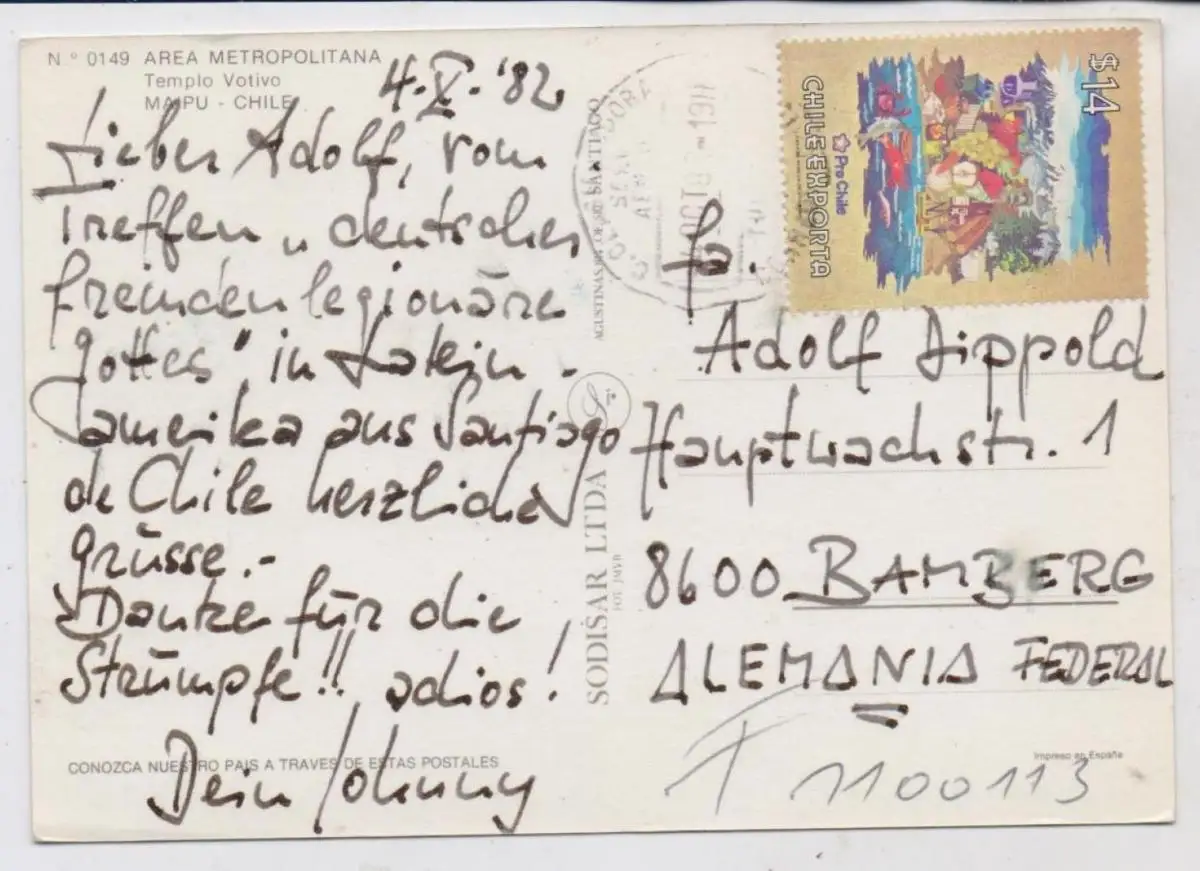 N° 0149 AREA METROPOLITANA
Templo Votivo
MAIPU - CHILE
4.X.'82
Lieber Adolf, vom
Treffen „deutscher
Fremdenlegionäre
Gottes" in Latein-
amerika aus Santiago
de Chile herzliche
Grüsse.-
Danke für die
Strümpfe!! adios!
Dein Johnny
CONOZCA NUESTRO PAIS A TRAVES DE ESTAS POSTALES
SODISAR LTDA
$14
Pro Chile
CHILE EXPORTA
Adolf Dippold
Hauptwachstr. 1
8600 BAMBERG
ALEMANIA FEDERAL
Impreso en España
1100113